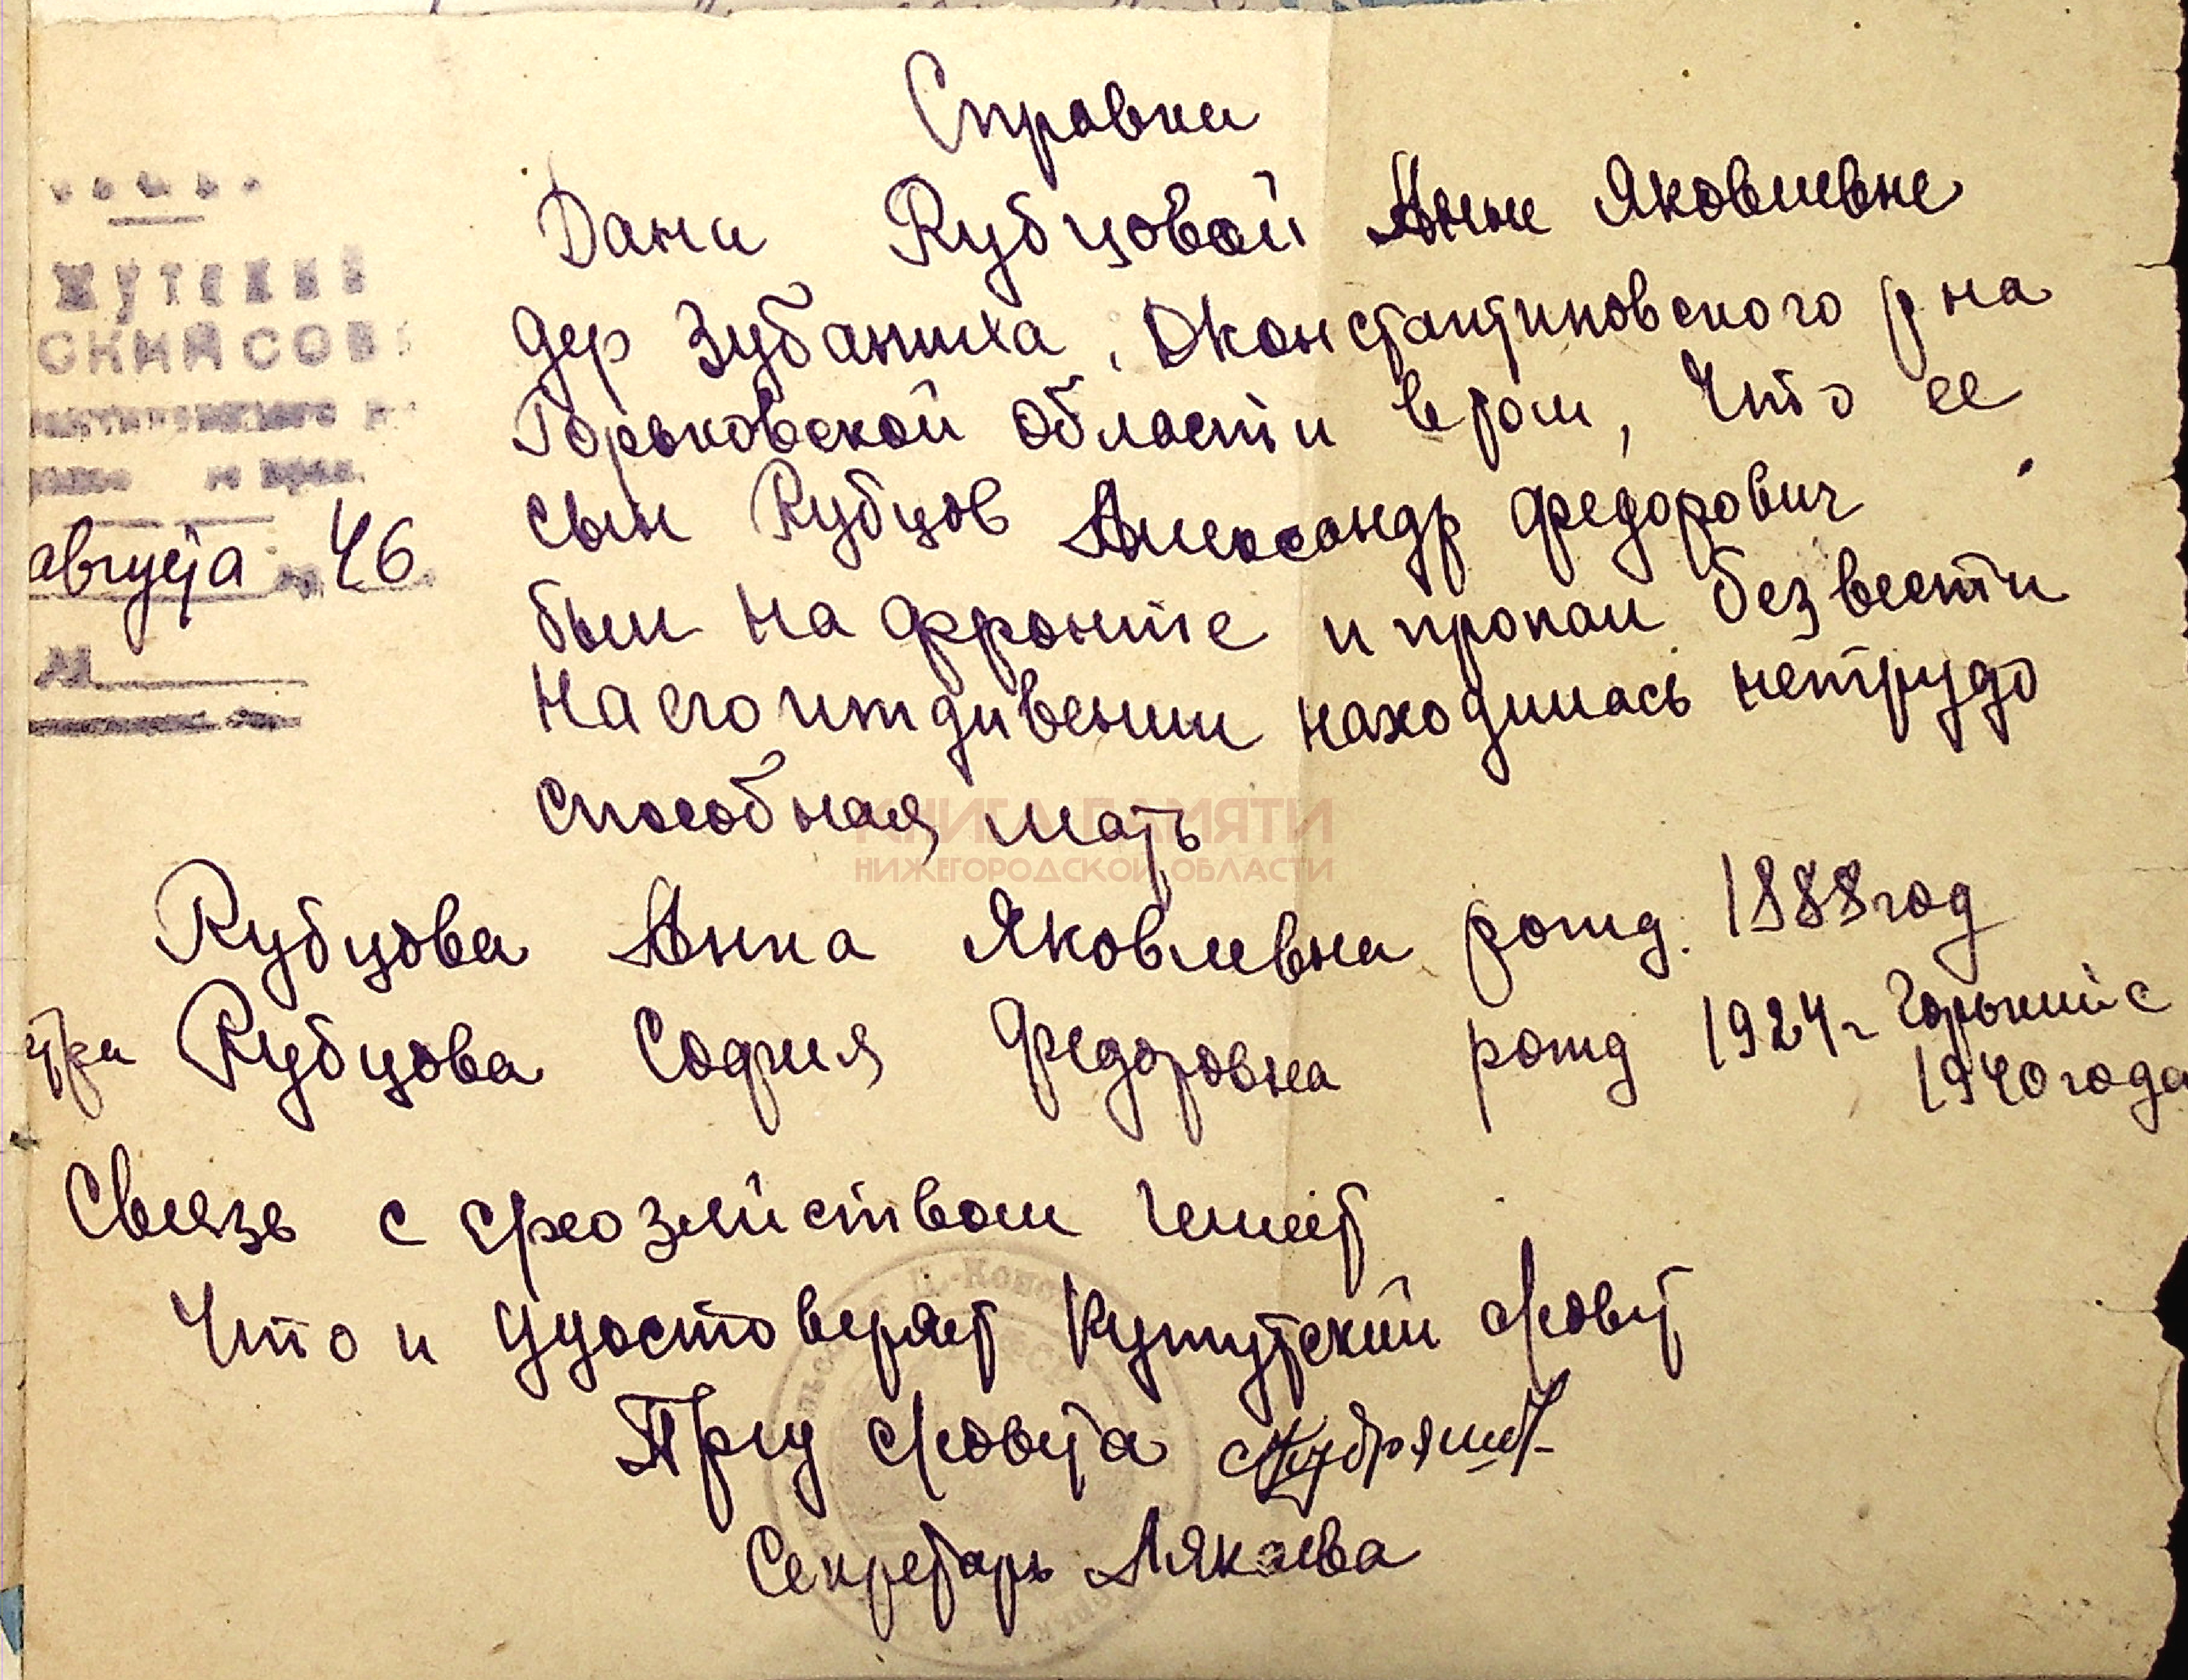 Справка
Дана Рубцовой Анне Яковлевне
дер Зубаниха, Дконстантиновского р на
Горьковской области в том, что ее
сын Рубцов Александр Федорович
был на фронте и пропал безвести
На его иждивении находилась нетрудо
способная мать
Рубцова Анна Яковлевна рожд. 1888 год
Рубцова София Федоровна рожд 1924 г Горький с
1940 года
Связь с хозяйством имеет
Что и удостоверяет с/совет
Пред с/совета
Секретарь Лякаева
ЖУТСКИЙ
СКИЙ СОВ
августа 46
КНИГА ПАМЯТИ
НИЖЕГОРОДСКОЙ ОБЛАСТИ